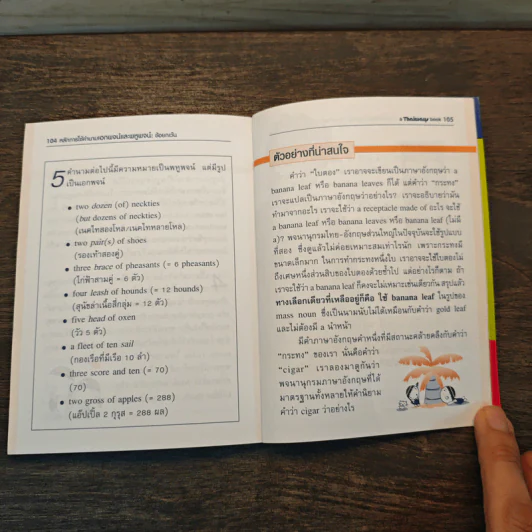 104 หลักการใช้คำนามเอกพจน์และพหูพจน์: ข้อยกเว้น
5 คำนามต่อไปนี้มีความหมายเป็นพหูพจน์ แต่มีรูป
เป็นเอกพจน์
• two dozen (of) neckties
(but dozens of neckties)
(เนคไทสองโหล/เนคไทหลายโหล)
• two pair(s) of shoes
(รองเท้าสองคู่)
• three brace of pheasants (= 6 pheasants)
(ไก่ฟ้าสามคู่ = 6 ตัว)
• four leash of hounds (= 12 hounds)
(สุนัขล่าเนื้อสี่กลุ่ม = 12 ตัว)
• five head of oxen
(วัว 5 ตัว)
• a fleet of ten sail
(กองเรือที่มีเรือ 10 ลำ)
• three score and ten (= 70)
(70)
• two gross of apples (= 288)
(แอ๊ปเปิ้ล 2 กุรุส = 288 ผล)
165
ตัวอย่างที่น่าสนใจ
คำว่า "ใบตอง" เราอาจจะเขียนเป็นภาษาอังกฤษว่า a
banana leaf หรือ banana leaves ก็ได้ แต่คำว่า "กระทง"
เราจะแปลเป็นภาษาอังกฤษว่าอย่างไร? เราจะอธิบายว่ามัน
ทำมาจากอะไร เราจะใช้ว่า a receptacle made of อะไร จะใช้
a banana leaf หรือ banana leaves หรือ banana leaf (ไม่มี
a)? พจนานุกรมไทย-อังกฤษส่วนใหญ่ในปัจจุบันจะใช้รูปแบบ
ที่สอง ซึ่งดูแล้วไม่ค่อยเหมาะสมเท่าไรนัก เพราะกระทงมี
ขนาดเล็กมาก ในการทำกระทงหนึ่งใบ เราอาจจะใช้ใบตองไม่
ถึงเศษหนึ่งส่วนสิบของใบตองด้วยซ้ำไป แต่อย่างไรก็ตาม ถ้า
เราจะใช้ว่า a banana leaf ก็คงจะไม่เหมาะเช่นเดียวกัน สรุปแล้ว
ทางเลือกเดียวที่เหลืออยู่ก็คือ ใช้ banana leaf ในรูปของ
mass noun ซึ่งเป็นนามนับไม่ได้เหมือนกับคำว่า gold leaf
และไม่ต้องมี a นำหน้า
มีคำภาษาอังกฤษคำหนึ่งที่มีสถานะคล้ายคลึงกับคำว่า
"กระทง" ของเรา นั่นคือคำว่า
"cigar" เราลองมาดูกันว่า
พจนานุกรมภาษาอังกฤษที่ได้
มาตรฐานทั้งหลายให้คำนิยาม
คำว่า cigar ว่าอย่างไร